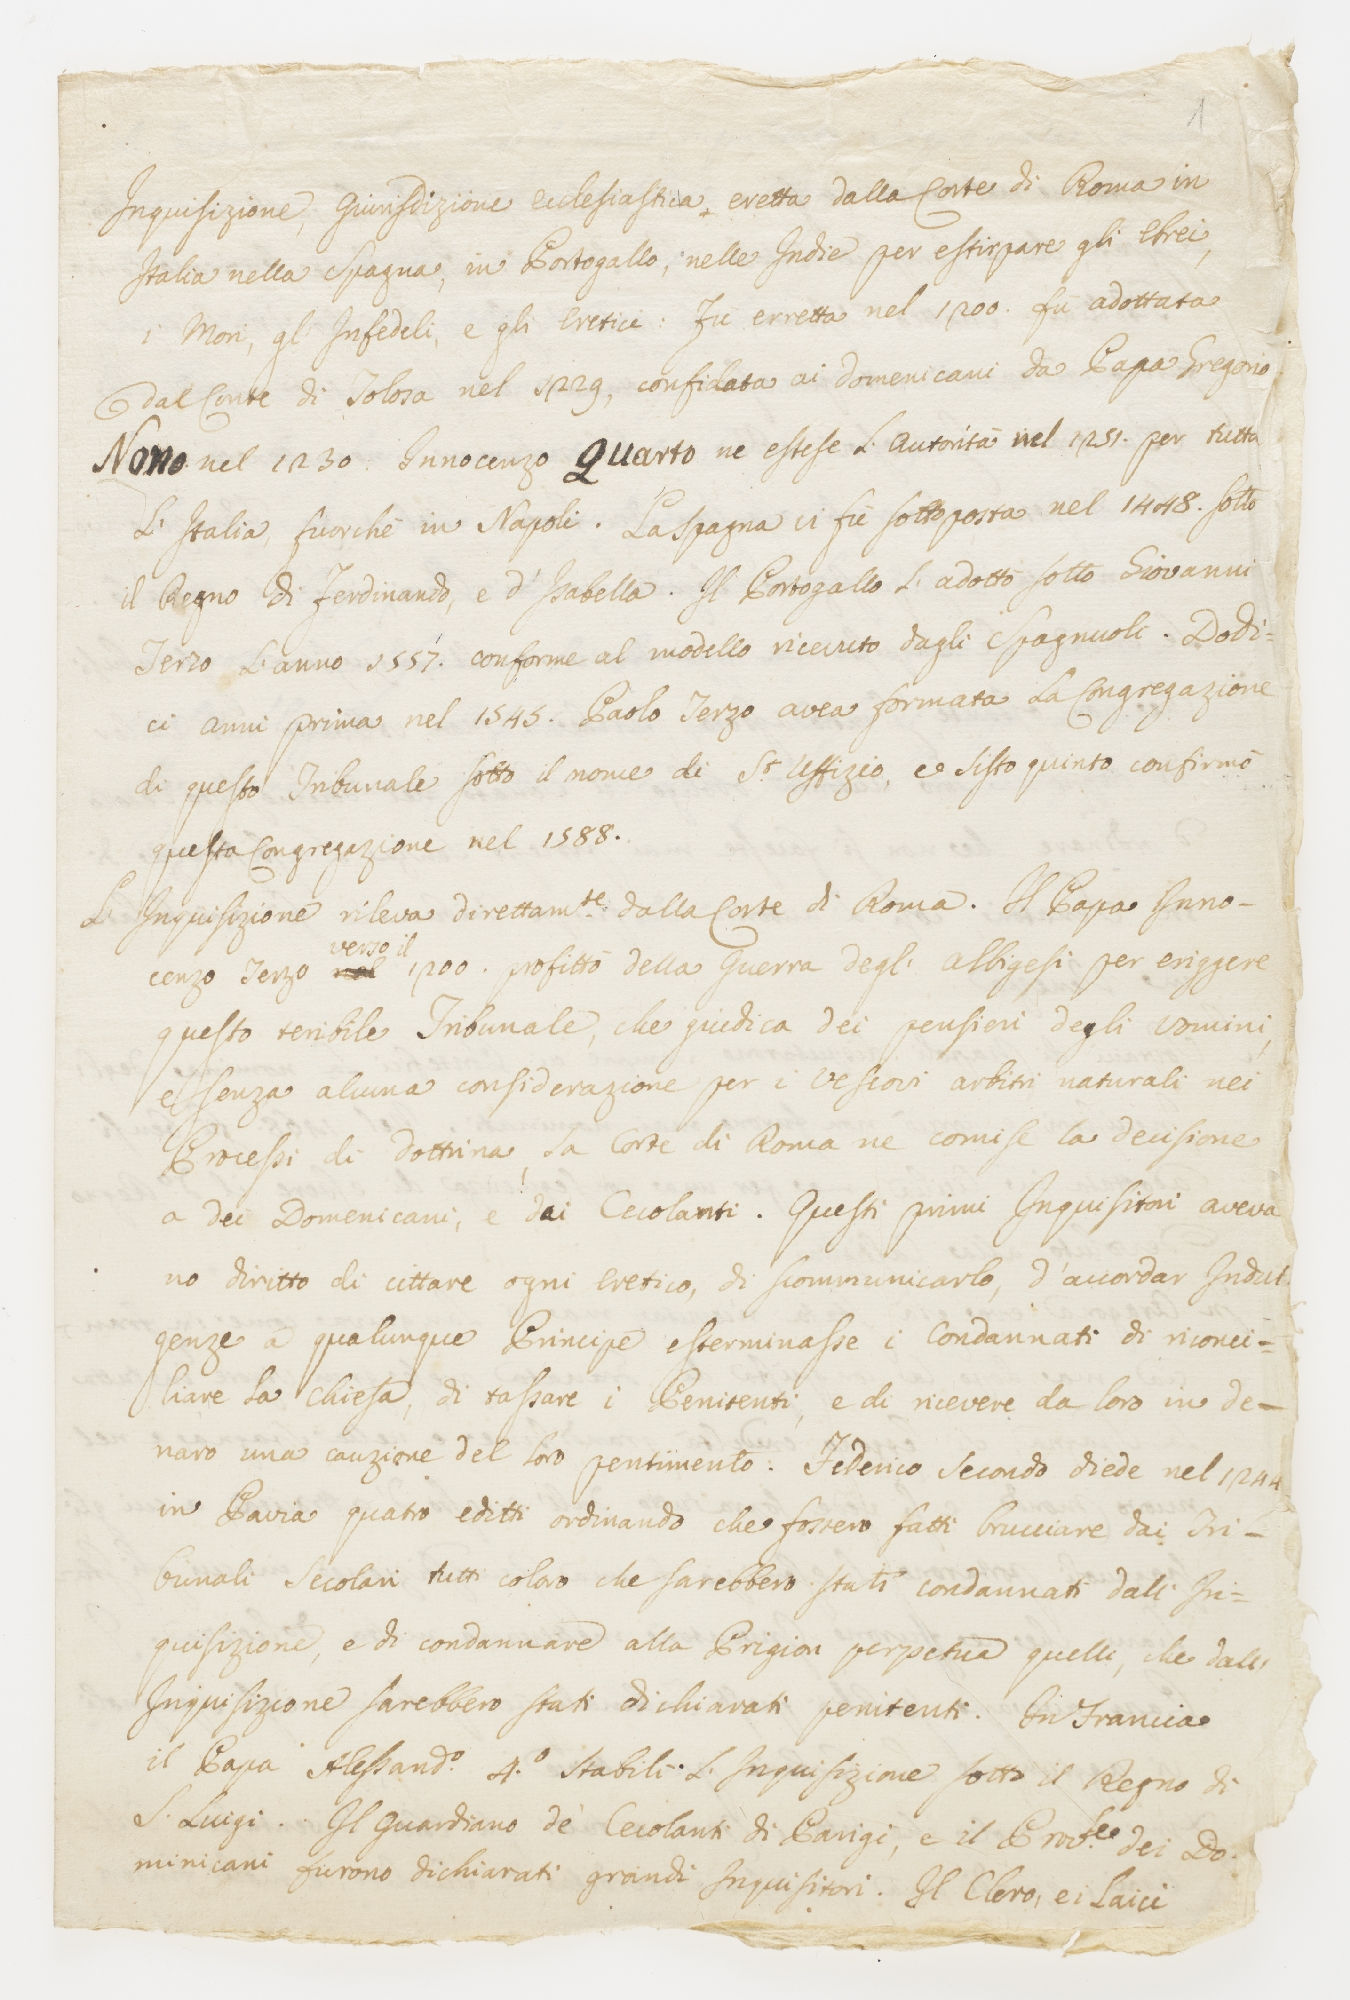 1
Inquisizione, Giurisdizione ecclesiastica, eretta dalla Corte di Roma in
Italia nella Spagna, in Portogallo, nelle Indie per estirpare gli Ebrei,
i Mori, gl' Infedeli, e gli Eretici: Fù erretta nel 1200. fù adottata
dal Conte di Tolosa nel 1229, confidata ai domenicani da Papa Gregorio
Nono nel 1230. Innocenzo Quarto ne estese l'autorità nel 1251. per tutta
L'Italia, fuorchè in Napoli. La Spagna ci fù sottoposta nel 1448. sotto
il Regno di Ferdinando, e d'Isabella. Il Portogallo l'adottò sotto Giovanni
Terzo l'anno 1557. conforme al modello ricevuto dagli Spagnuoli. Dodi=
ci anni prima nel 1545. Paolo Terzo avea formata la Congregazione
di questo Tribunale sotto il nome di St Uffizio, e Sisto quinto confirmò
questa Congregazione nel 1588.
L'Inquisizione rileva direttamte dalla Corte di Roma. Il Papa Inno-
cenzo Terzo verso il 1200. profittò della Guerra degl' albigesi per eriggere
questo teribile Tribunale, che giudica dei pensieri degli uomini,
e senza alcuna considerazione per i Vescovi arbitri naturali nei
Processi di dottrina, la Corte di Roma ne comise la decisione
a dei Domenicani, e dai Cecolanti. Questi primi Inquisitori aveva
no diritto di cittare ogni Eretico, di scommunicarlo, d'accordar Indul
genze a qualunque Principe esterminasse i condannati di riconci=
liare la Chiesa, di tassare i Penitenti, e di ricevere da loro in de-
naro una cauzione del loro pentimento. Federico Secondo diede nel 1244
in Pavia quatro editti ordinando che fossero fatti brucciare dai Tri-
bunali Secolari tutti coloro che sarebbero stati condannati dall' In=
quisizione, e di condannare alla Prigion perpetua quelli, che dall'
Inquisizione sarebbero stati dichiarati penitenti. In Francia
il Papa Alessando. 4.o stabilì l'Inquisizione sotto il Regno di
S. Luigi. Il Guardiano de' Cecolanti di Parigi, e il Provle dei Do-
minicani furono dichiarati grandi Inquisitori. Il Clero, e i Laici